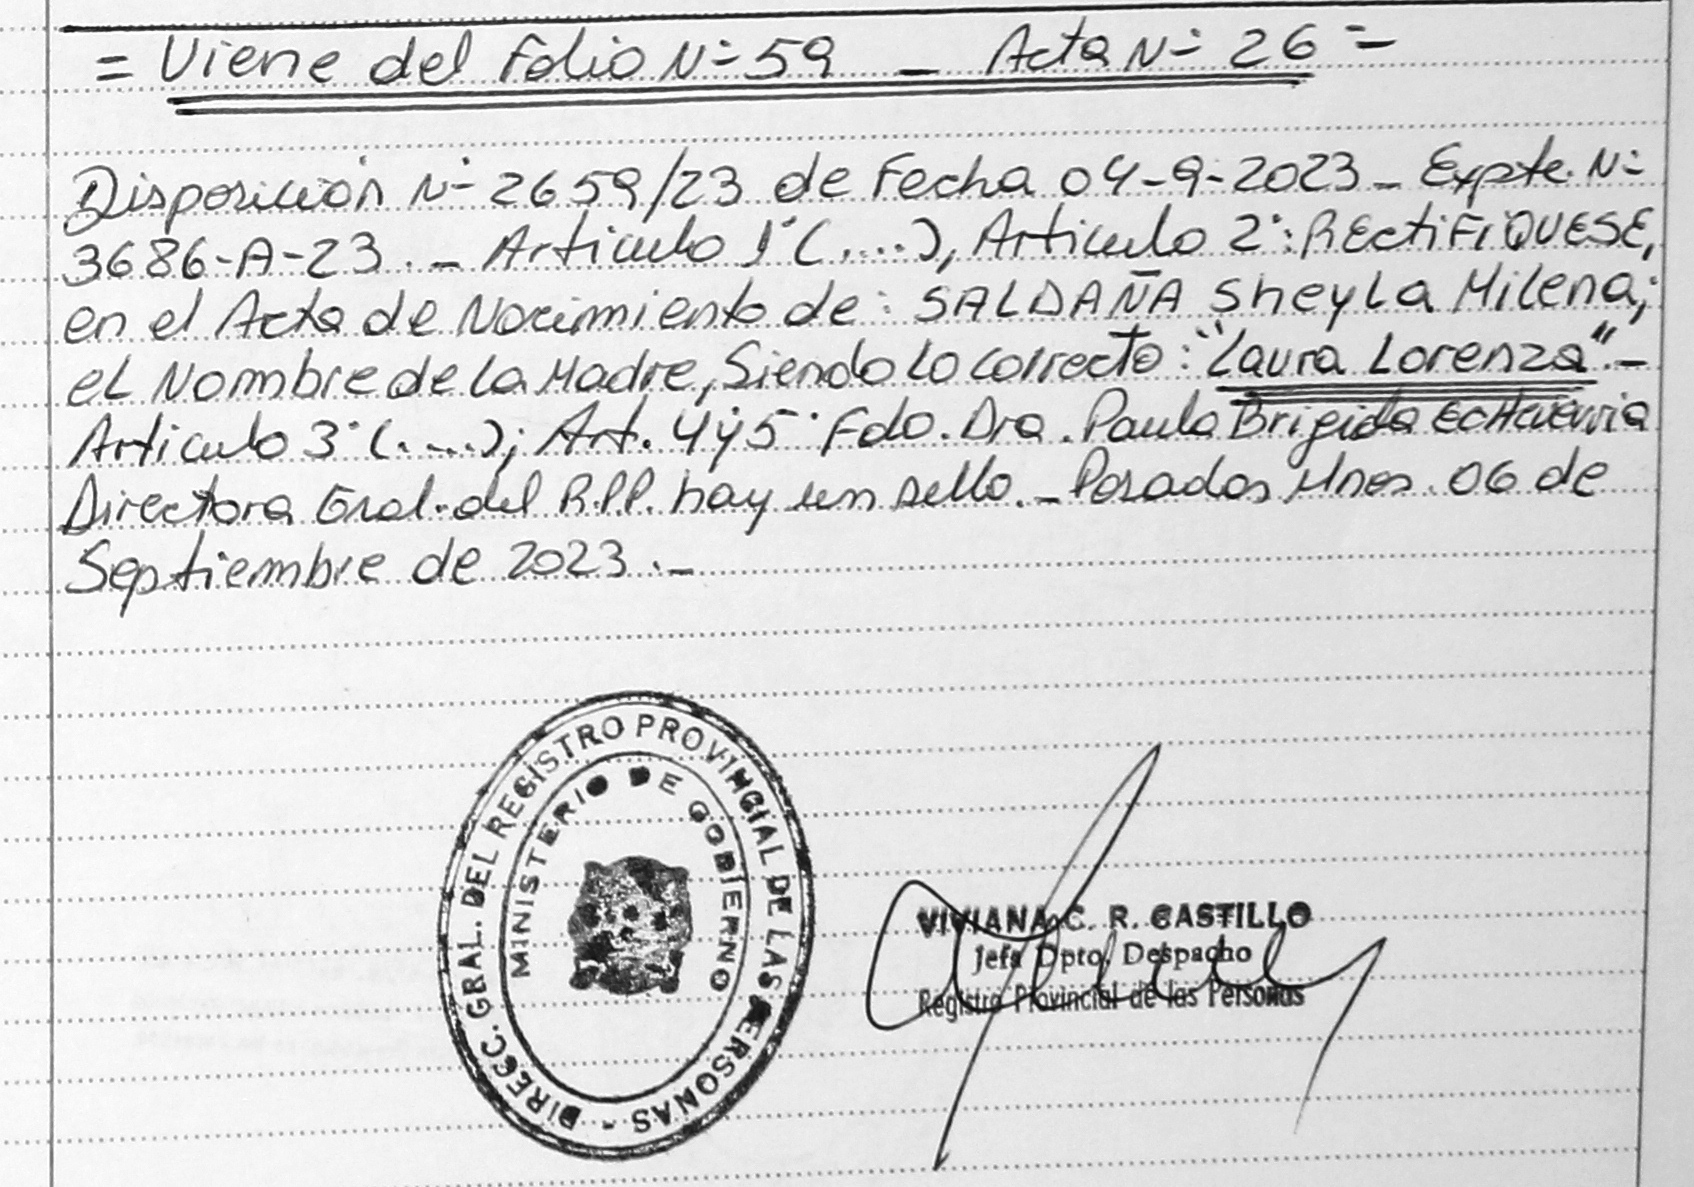 = Viene del Folio N° 59 _ Acta N° 26 =
Disposición N° 2659/23 de Fecha 04-9-2023 _ Expte. N°
3686-A-23 ._ Articulo 1° (....), Articulo 2°: RECTIFIQUESE,
en el Acta de Nacimiento de: SALDAÑA Sheyla Milena;
el Nombre de la Madre, Siendo lo correcto: "Laura Lorenza"._
Articulo 3° (....); Art. 4 y 5° Fdo. Dra. Paula Brigida Echeverria
Directora Gral. del R.P.P. hay un sello._ Posadas Mnes. 06 de
Septiembre de 2023 ._
DIRECC. GRAL. DEL REGISTRO PROVINCIAL DE LAS PERSONAS -
MINISTERIO DE GOBIERNO
VIVIANA C. R. CASTILLO
Jefa Dpto. Despacho
Registro Provincial de las Personas